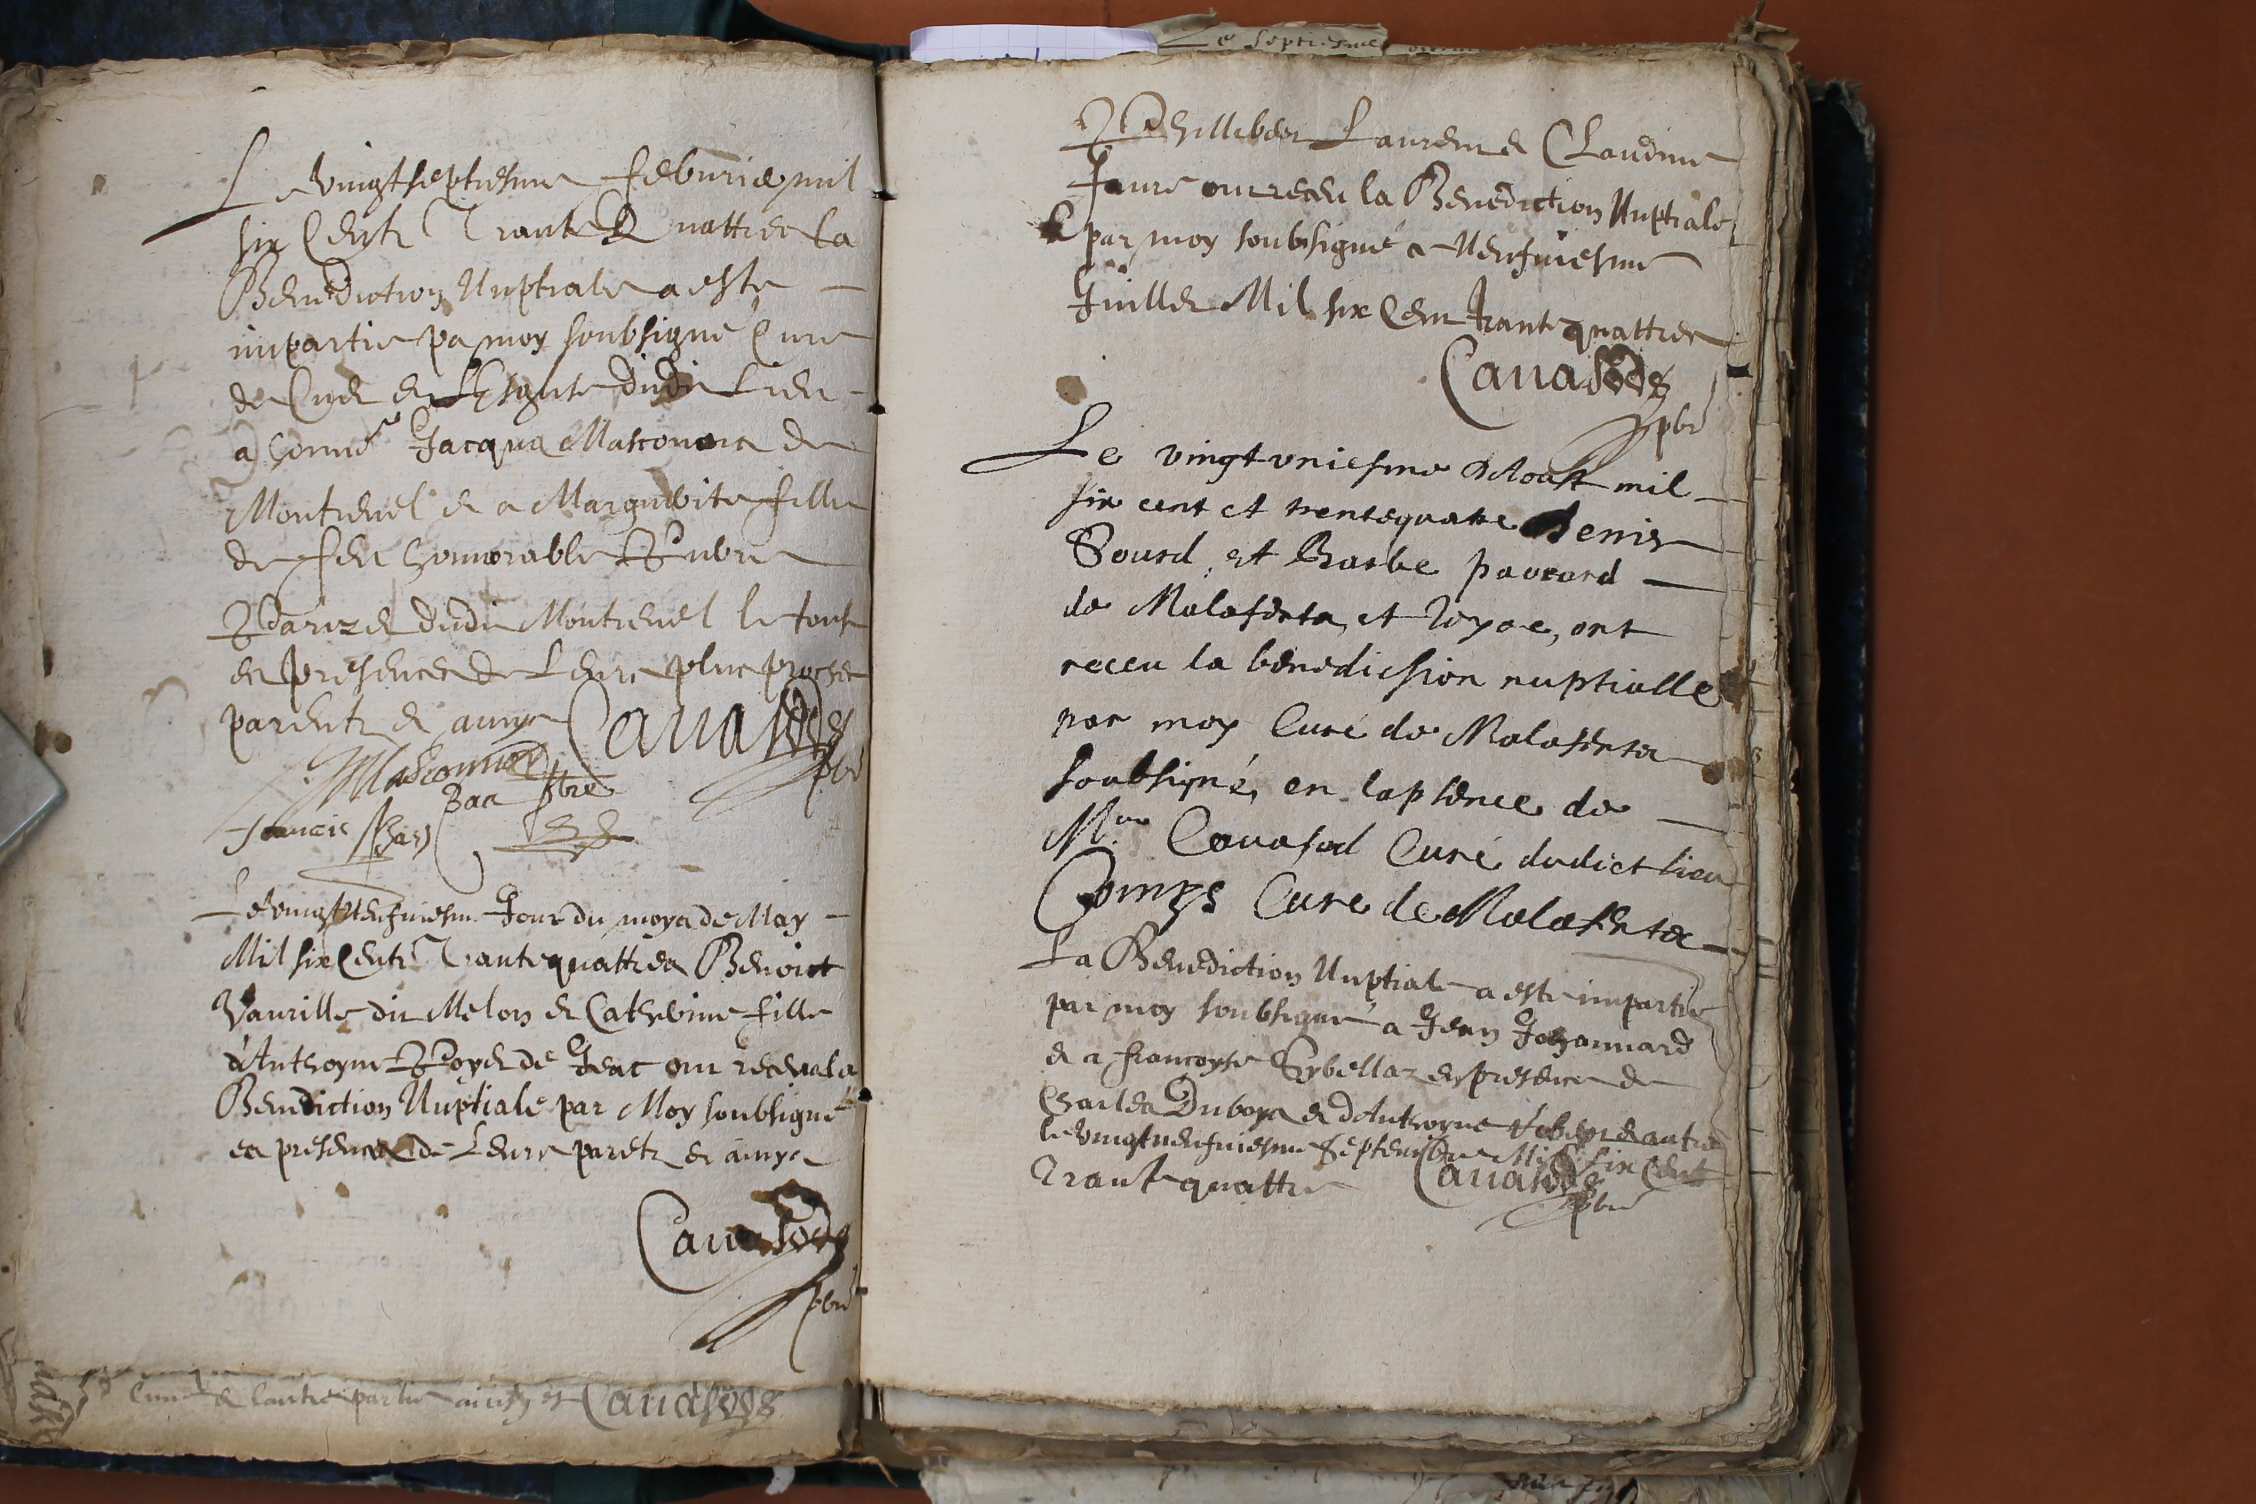 Le vingtseptiesme febvrier mil
six Centz Trante Quattre la
Benediction Nuptiale a esté
impartie pa moy soubsigné Curé
de Cuet en L'Esglise dudit Lieu
a honn^e Jacques Masconnois de
Montrevel et a Marguerite fille
de feu honnorable
dudit Montrevel le tout
en presence de Leurs plus proches
parentz et amys Cauasodz
Masconnoys pbr
Francis
Le vingtneufviesme Jour du moys de May
Mil six Centz Trante quattre Benoict
Vaurille dit Melon et Catherine fille
d'Anthoyne Royer de Jeac ont receu la
Benediction Nuptiale par Moy soubsigné
en presence de Leurs parentz et amys
Cauasodz
pbr
et lautre partie Cauasodz
Le septiesme
Phillibert Laurent et Claudine
Faure ont receu la Benediction Nuptiale
par moy soubsigné ce Neufviesme
Juillet Mil six Cent trante quattre
Cauasodz
pbr
Le vingt vniesme d'Aoust mil
six cent et trente quatre Denis
Sourd, et Barbe pauvard
de Malafreta, et ont
receu la benediction nuptialle
par moy Curé de Malafreta
soubsigné, en l'apsence de
M^re Cauasod Curé dudict lieu
Comps Curé de Malafreta
La Benediction Nuptiale a esté impartie
par moy soubsigné a Jean Johannard
et a francoyse en presence de
Charles Duboys et d'Anthoyne
le vingtneufviesme Septembre Mil six Cent
Trante quattre Cauasodz
pbr